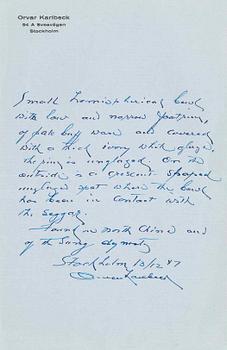 Orvar Karlbeck
94 A Sveavägen
Stockholm
Small hemispherical bowl
with low and narrow footrim,
of pale buff ware and covered
with a thick ivory white glaze.
the rim is unglazed. On the
outside is a crescent shaped
unglazed spot where the bowl
has been in contact with
the seggar.
Found in North China and
of the Sung dynasty
Stockholm 13/12 47
Orvar Karlbeck